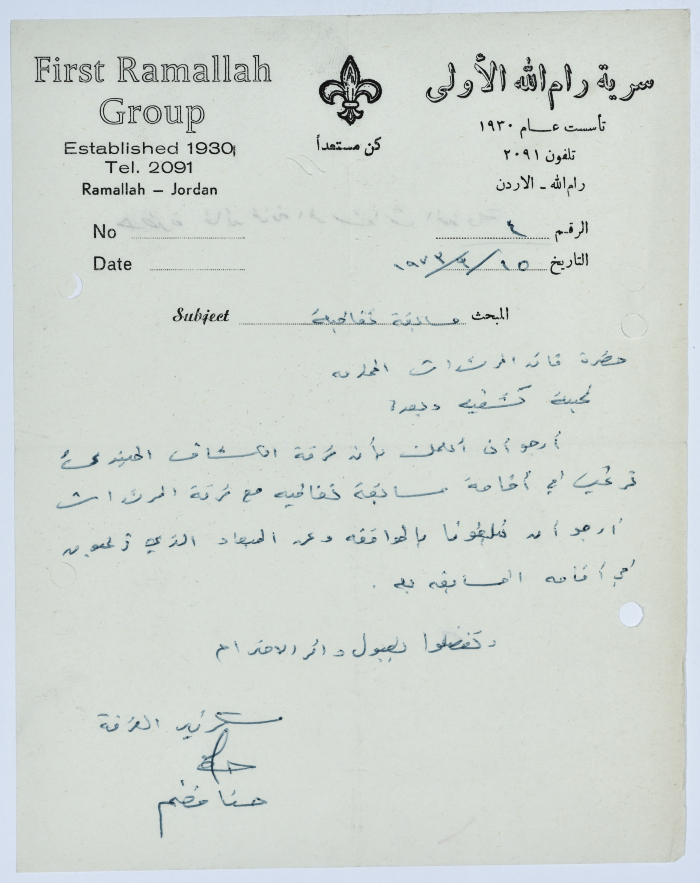 First Ramallah
Group
Established 1930
Tel. 2091
Ramallah – Jordan
كن مستعداً
سرية رام الله الأولى
تأسست عام ١٩٣٠
تلفون ٢٠٩١
رام الله - الاردن
No
الرقم ٤
Date
التاريخ ١٥/٩/١٩٧٣
Subject مسابقة ثقافية المبحث
حضرة قائد المرشدات المحترمه
تحية كشفيه وبعد،
أرجو أن أعلمك بأن فرقة الكشاف
ترغب في أقامة مسابقة ثقافيه مع فرقة المرشدات
أرجو أن تبلغونا بالموافقه وعن الميعاد الذي ترغبون
في أقامه المسابقه به .
وتفضلوا بقبول وافر الاحترام
سكرتير الفرقة
حنا